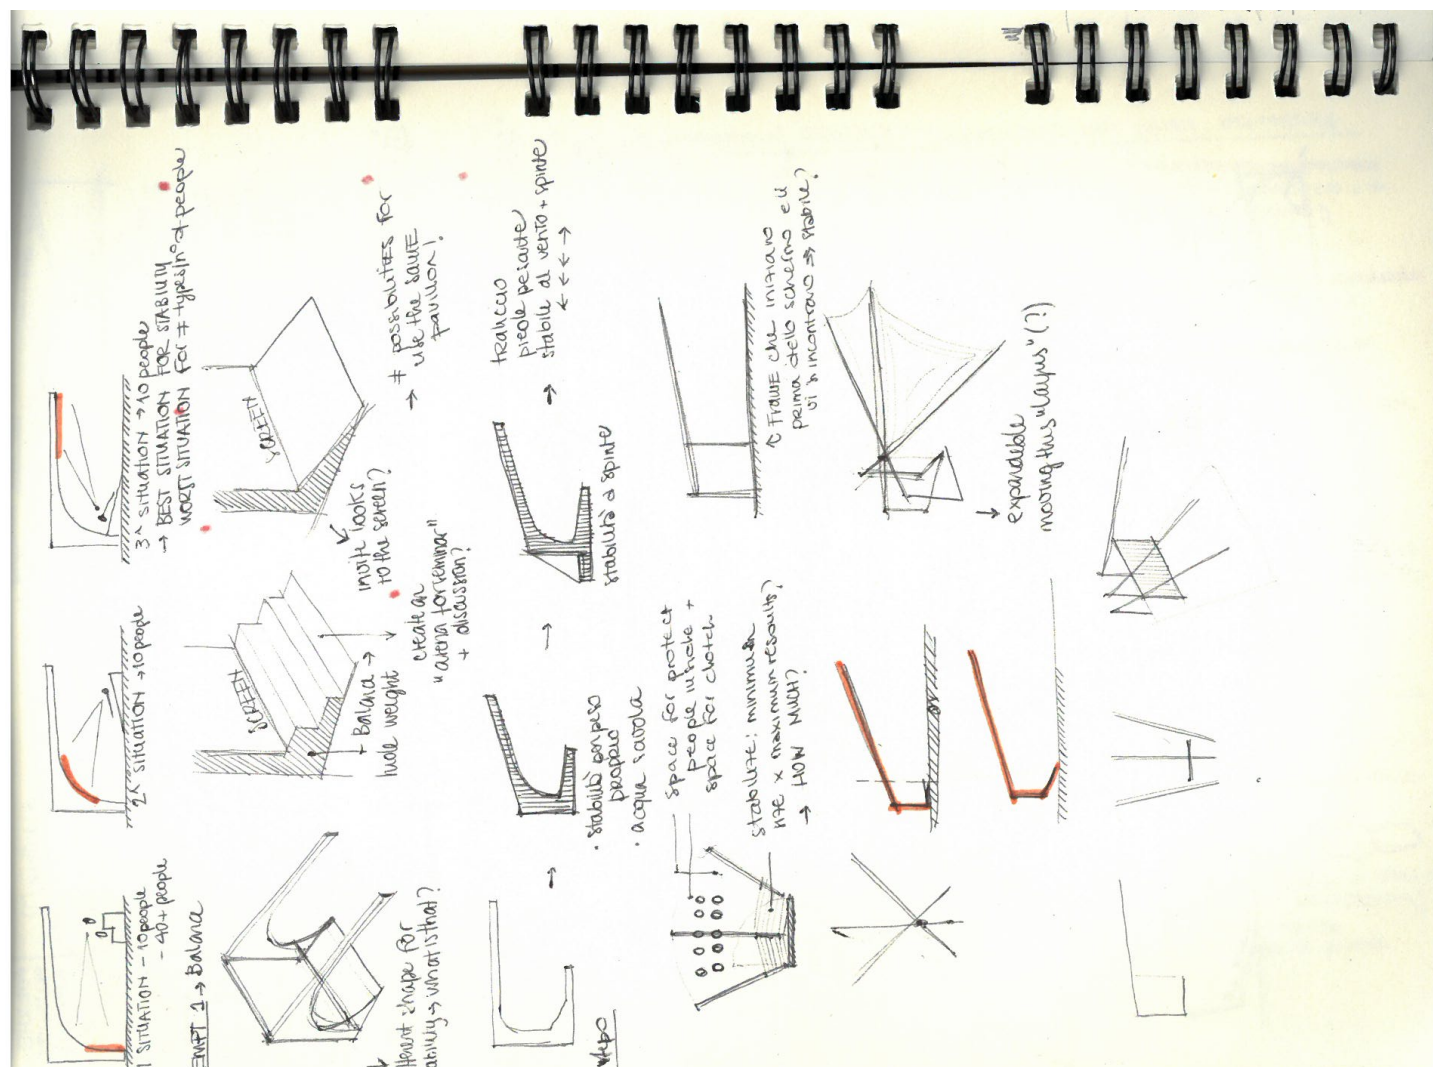 1 SITUATION - 10 people
- 40+ people
2^ SITUATION → 10 people
3^ SITUATION → 10 people
→ BEST SITUATION FOR STABILITY
WORST SITUATION FOR ≠ types/n° of people
EMPT 1 → Balance
SCREEN
+ Balance →
hide weight
create an
"arena for seminar"
+ discussion?
SCREEN
invite looks
to the screen?
→ ≠ possibilities for
use the same
pavillon!
shape for
what is that?
→
• stabilità per peso
proprio
• acqua savola
→
stabilità a spinte
→
traliccio
pieole pesante
stabile al vento + spinte
← ← ← →
space for protect
people inside +
space for
stabilize: minimum
x maximum results?
→ HOW MUCH?
↑ FRAME che iniziano
prima dello schermo e lì
vi si incontrano ⇒ stabile?
→ expandable
moving this "layus" (?)